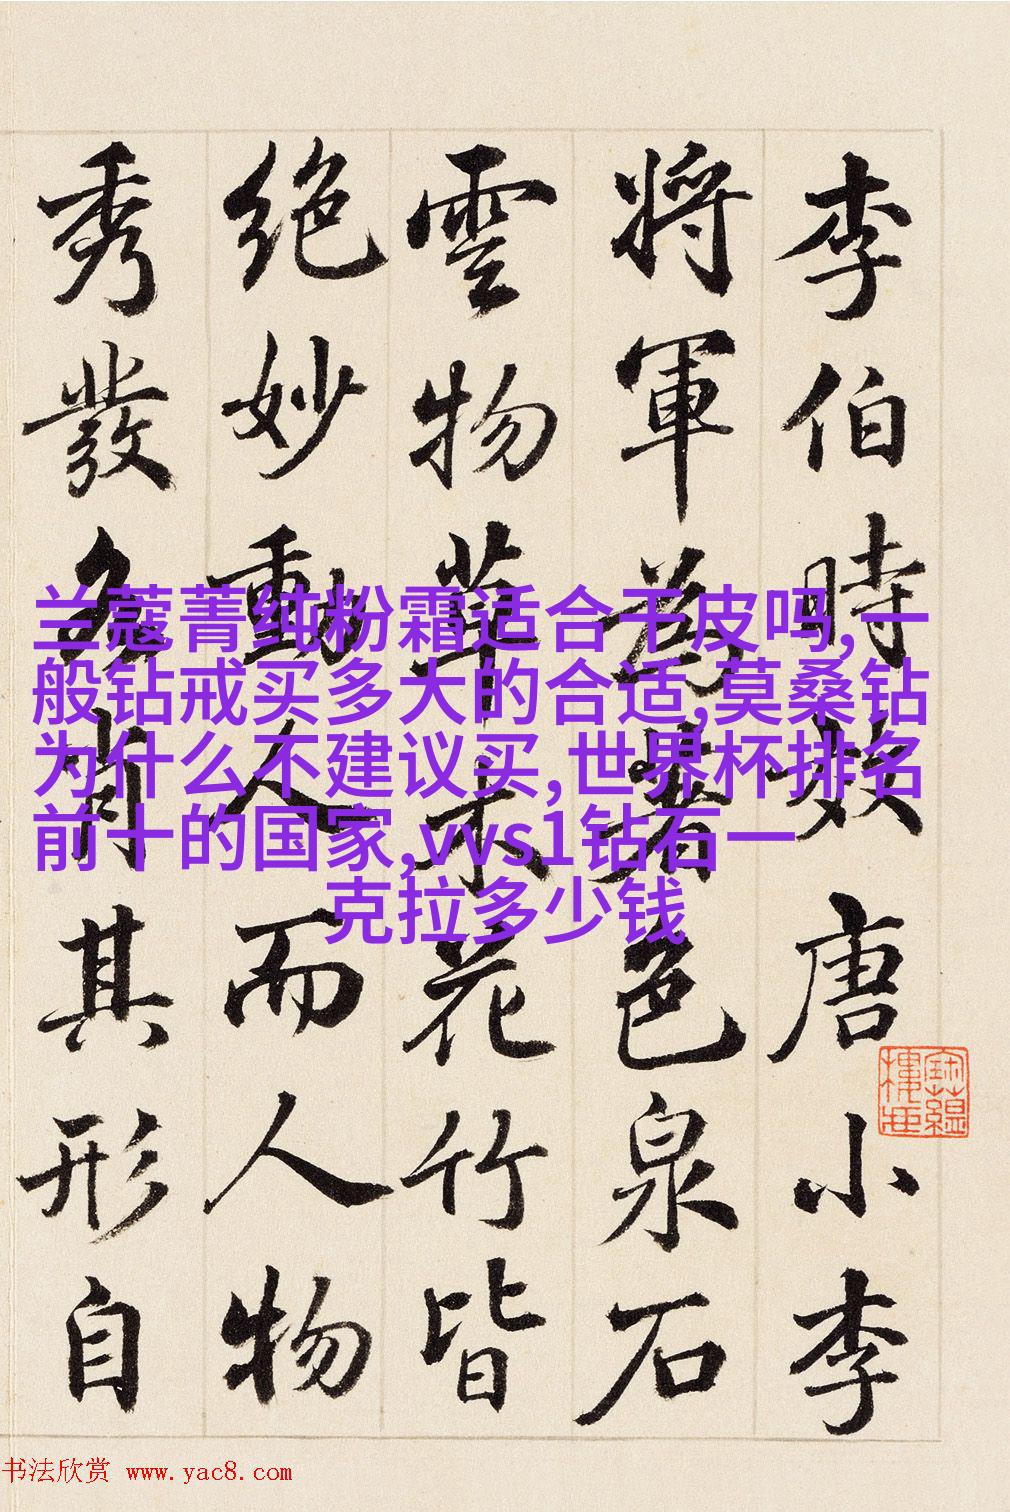 李伯時效唐小李
將軍為著色泉石
雲物草木花竹皆
絶妙動人而人物
秀發各肖其形自
兰蔻菁纯粉霜适合干皮吗,一
般钻戒买多大的合适,莫桑钻
为什么不建议买,世界杯排名
前十的国家,vvs1钻石一
克拉多少钱
书法欣赏 www.yac8.com